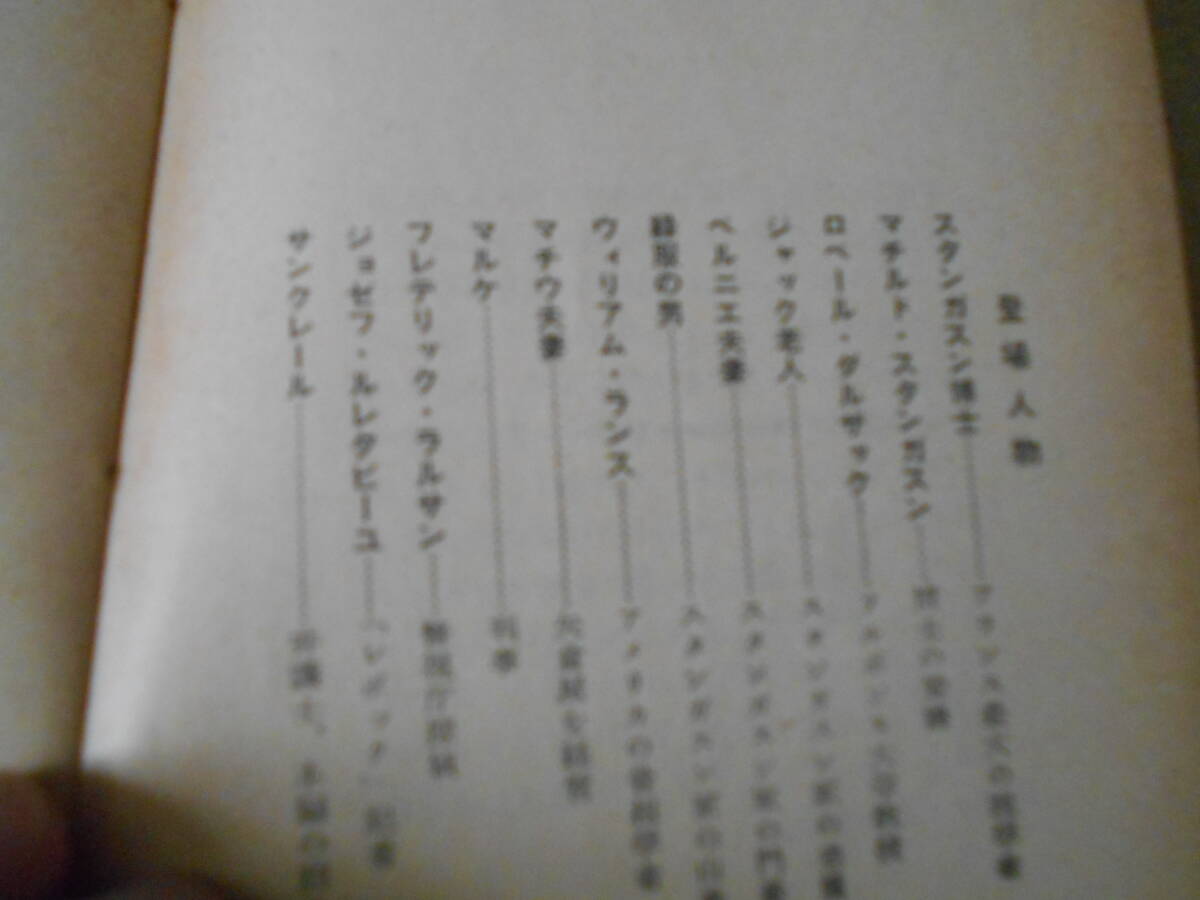 登場人物
スタンガスン博士……フランス最大の科学者
マチルド・スタンガスン……博士の愛嬢
ロベール・ダルザック……ソルボンヌ大学教授
ジャック老人……スタンガスン家の
ベルニエ夫妻……スタンガスン家の門
緑服の男……スタンガスン家の
ウィリアム・ランス……アメリカの骨相学者
マチウ夫妻……を経営
マルケ……判事
フレデリック・ラルサン……警視庁探偵
ジョゼフ・ルレタビーユ……「レポック」記者
サンクレール……弁護士、本編の